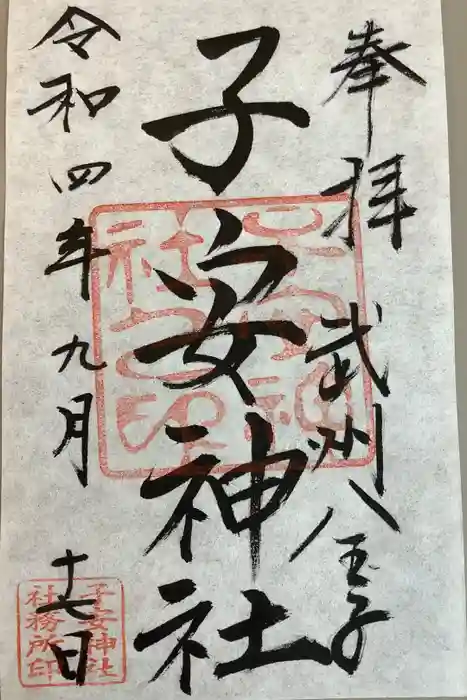 奉拝
武州八王子
子安神社
令和四年九月
十七日
子安神社
社務所印